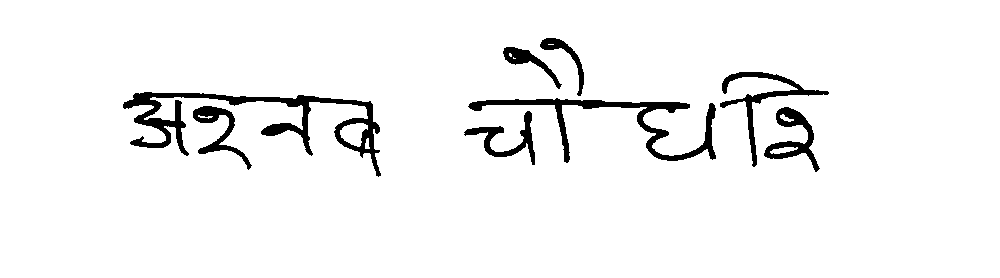 अरनव चौधरि